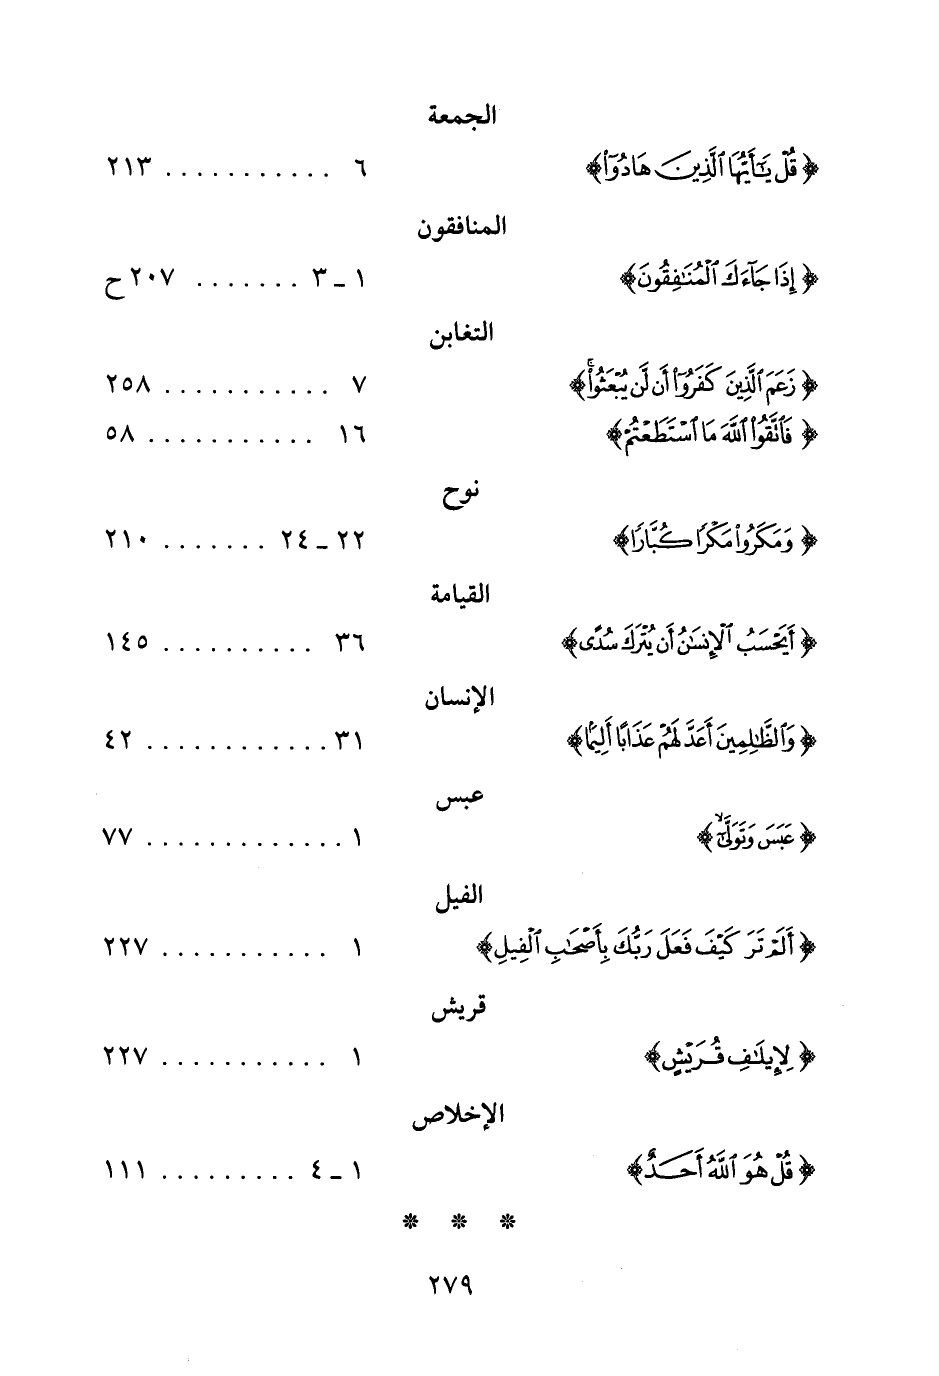 الجمعة
﴿ قُلْ يَٰٓأَيُّهَا ٱلَّذِينَ هَادُوٓا۟ ﴾ ٦ . . . . . . . . . . . ٢١٣
المنافقون
﴿ إِذَا جَآءَكَ ٱلْمُنَٰفِقُونَ ﴾ ١ ـ ٣ . . . . . . . ٢٠٧ ح
التغابن
﴿ زَعَمَ ٱلَّذِينَ كَفَرُوٓا۟ أَن لَّن يُبْعَثُوا۟ۚ ﴾ ٧ . . . . . . . . . . . ٢٥٨
﴿ فَٱتَّقُوا۟ ٱللَّهَ مَا ٱسْتَطَعْتُمْ ﴾ ١٦ . . . . . . . . . . . ٥٨
نوح
﴿ وَمَكَرُوا۟ مَكْرًا كُبَّارًا ﴾ ٢٢ ـ ٢٤ . . . . . . . ٢١٠
القيامة
﴿ أَيَحْسَبُ ٱلْإِنسَٰنُ أَن يُتْرَكَ سُدًى ﴾ ٣٦ . . . . . . . . . . ١٤٥
الإنسان
﴿ وَٱلظَّٰلِمِينَ أَعَدَّ لَهُمْ عَذَابًا أَلِيمًۢا ﴾ ٣١ . . . . . . . . . . . . ٤٢
عبس
﴿ عَبَسَ وَتَوَلَّىٰٓۙ ﴾ ١ . . . . . . . . . . . . . ٧٧
الفيل
﴿ أَلَمْ تَرَ كَيْفَ فَعَلَ رَبُّكَ بِأَصْحَٰبِ ٱلْفِيلِ ﴾ ١ . . . . . . . . . . . ٢٢٧
قريش
﴿ لِإِيلَٰفِ قُرَيْشٍ ﴾ ١ . . . . . . . . . . . ٢٢٧
الإخلاص
﴿ قُلْ هُوَ ٱللَّهُ أَحَدٌ ﴾ ١ ـ ٤ . . . . . . . . . ١١١
* * *
٢٧٩